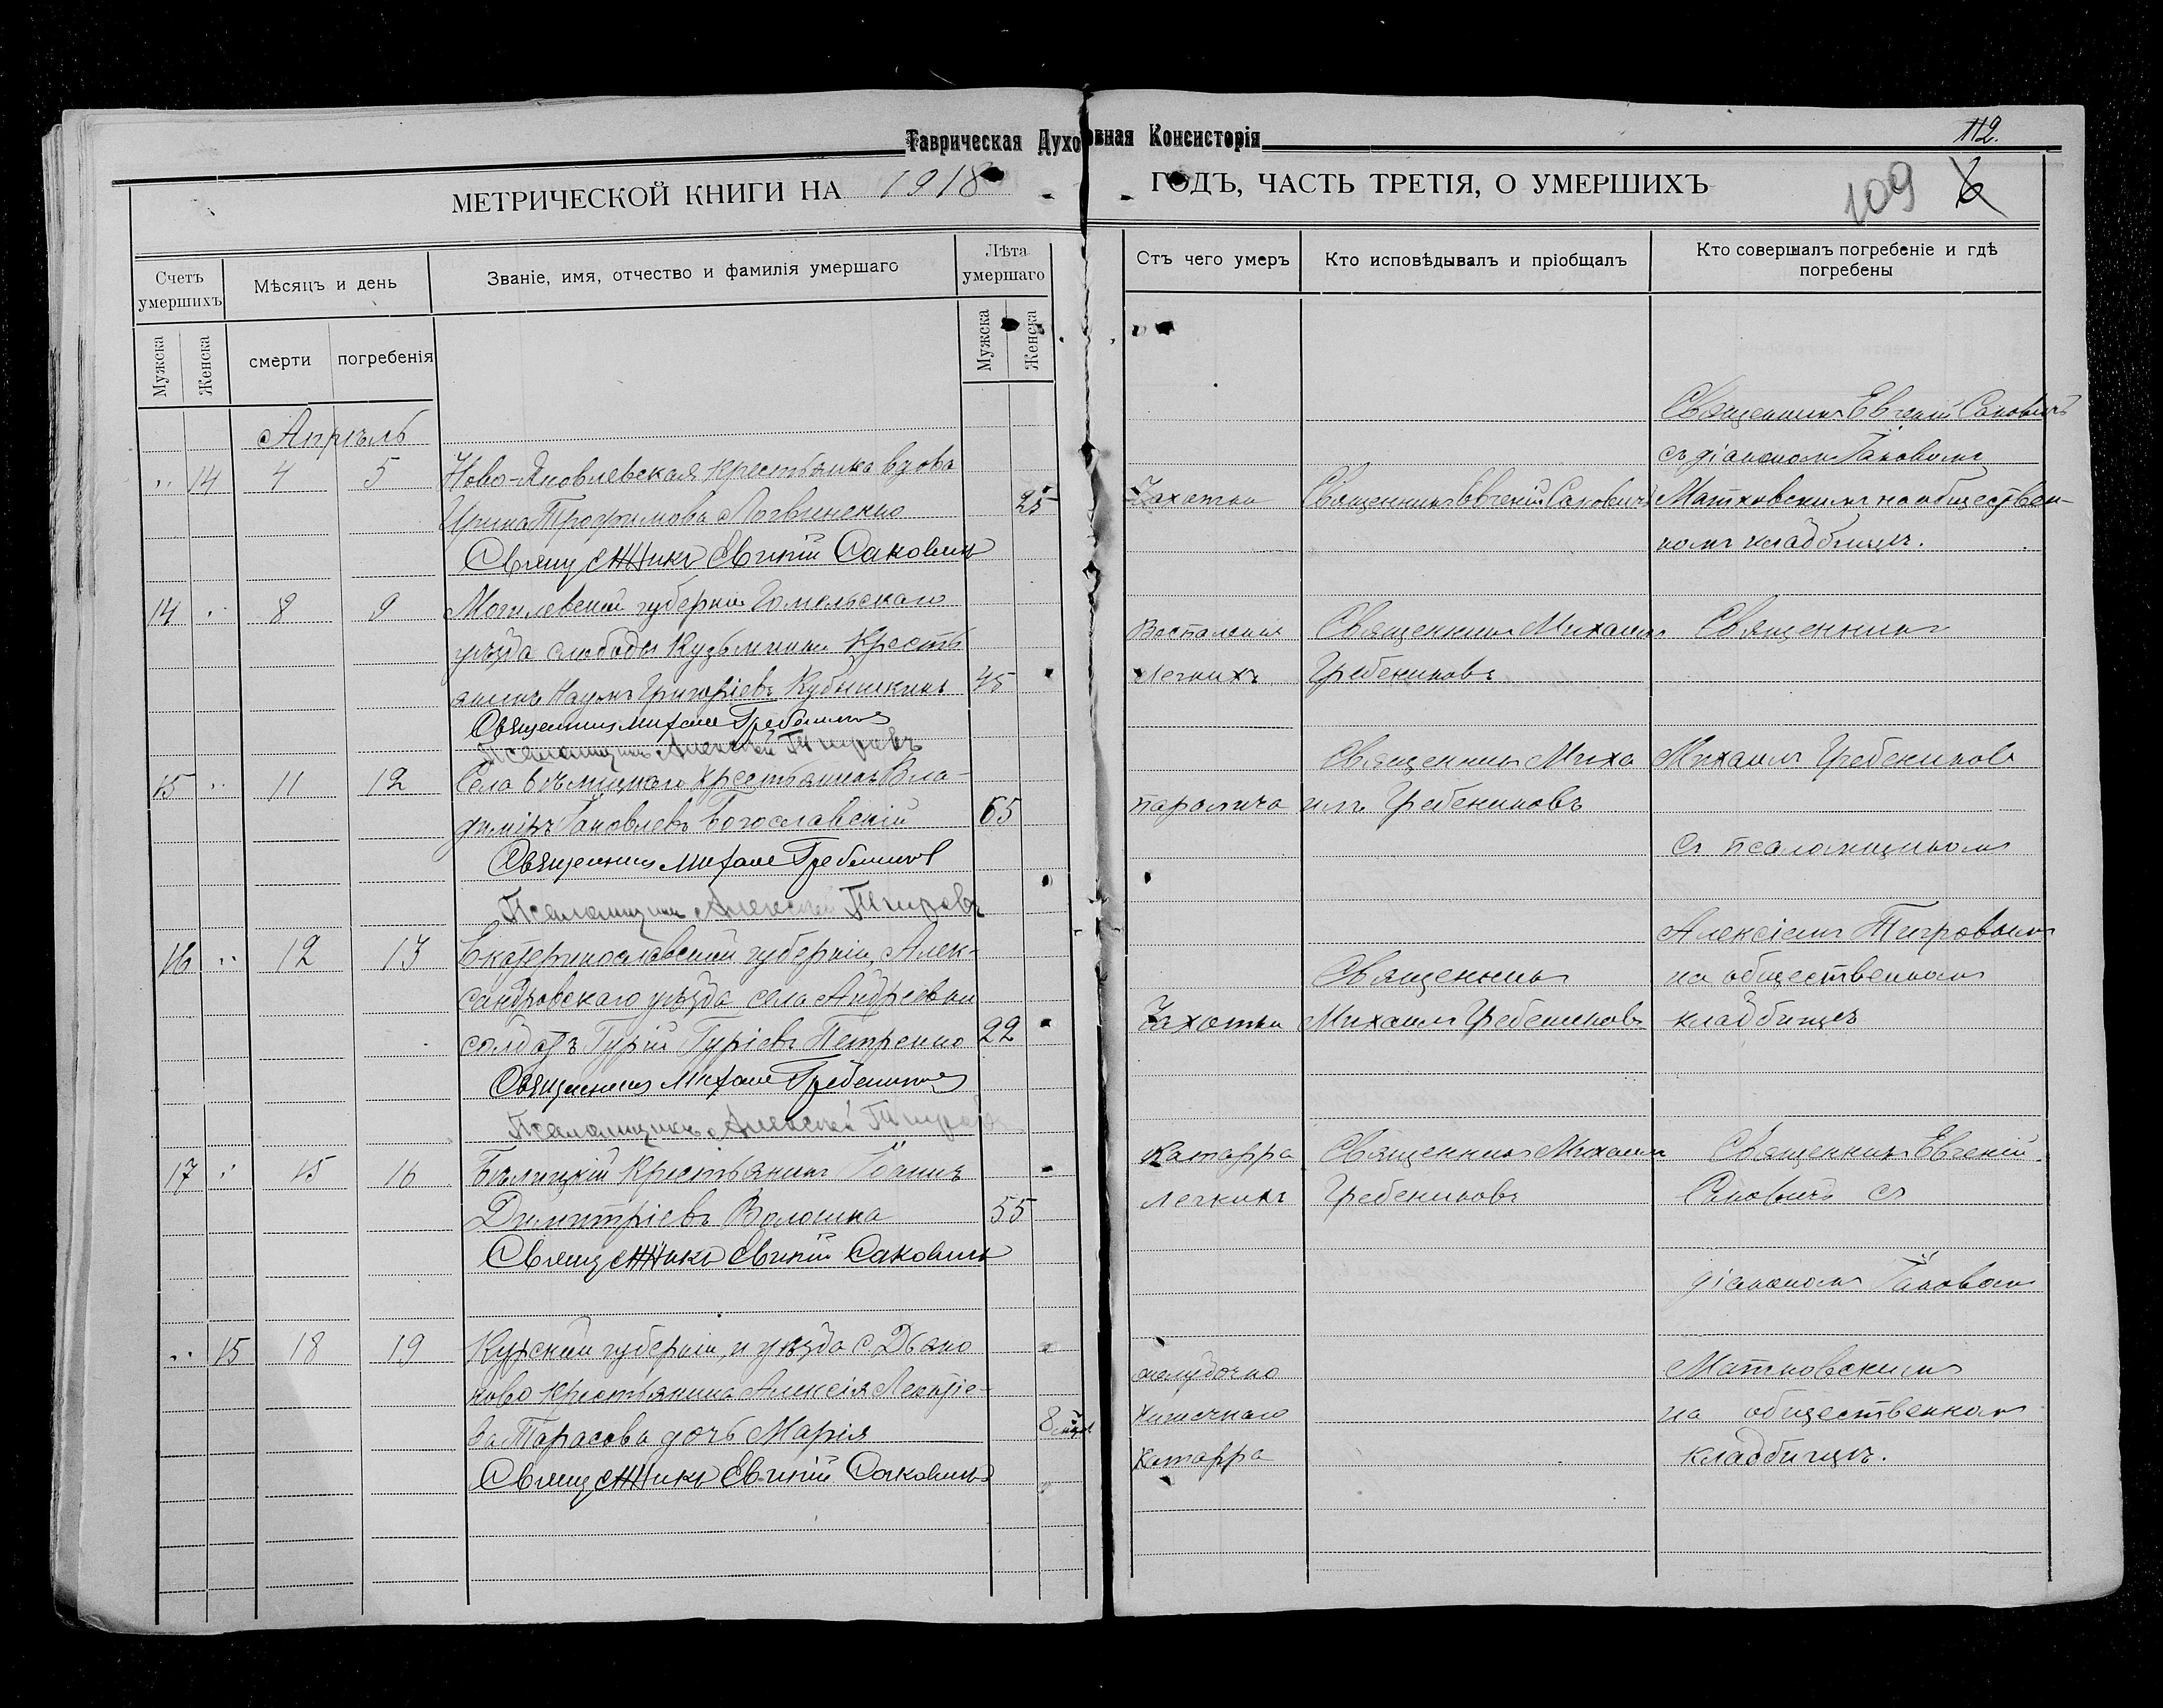 Таврическая Духовная Консисторія
112.
МЕТРИЧЕСКОЙ КНИГИ НА 1918 ГОДЪ, ЧАСТЬ ТРЕТІЯ, О УМЕРШИХЪ
109 6
Счетъ умершихъ
Мѣсяцъ и день
Званіе, имя, отчество и фамилія умершаго
Лѣта умершаго
Отъ чего умеръ
Кто исповѣдывалъ и пріобщалъ
Кто совершалъ погребеніе и гдѣ погребены
Мужска
Женска
смерти
погребенія
Мужска
Женска
Апрѣль
14 4 5 Ново-Яковлевская крестьянка вдова
Ирина Трофимова Логвиненко 25
Священникъ Евгеній Саковичъ
Чахотки
Священникъ Евгеній Саковичъ
Священникъ Евгеній Саковичъ
съ діакономъ Іаковомъ
Матковскимъ на обществен-
номъ кладбищѣ.
14 8 9 Могилевской губерніи Гомельскаго
уѣзда слободы Кузьминки Кресть
янинъ Наумъ Григоріевъ Кубышкинъ 45
Священникъ Михаилъ Гребениковъ
Псаломщикъ Алексѣй Тигровъ
Воспаленія
легкихъ
Священникъ Михаилъ
Гребениковъ
Священникъ
15 11 12 Села Бѣлицкаго крестьянинъ Вла-
диміръ Іаковлевъ Богославскій 65
Священникъ Михаилъ Гребениковъ
Псаломщикъ Алексѣй Тигровъ
паралича
Священникъ Миха
илъ Гребениковъ
Михаилъ Гребениковъ
съ псаломщикомъ
16 12 13 Екатеринославской губерніи, Алек-
сандровскаго уѣзда села Андреевки
солдатъ Гурій Гуріевъ Петренко 22
Священникъ Михаилъ Гребениковъ
Псаломщикъ Алексѣй Тигровъ
Чахотки
Священникъ
Михаилъ Гребениковъ
Алексіемъ Тигровымъ
на общественномъ
кладбищѣ
17 15 16 Бѣлицкій крестьянинъ Іоаннъ
Димитріевъ Волошка 55
Священникъ Евгеній Саковичъ
Катарра
легкихъ
Священникъ Михаилъ
Гребениковъ
Священникъ Евгеній
Саковичъ съ
діакономъ Іаковомъ
15 18 19 Курской губерніи, и уѣзда с. Дьяко
ново крестьянина Алексія
Тарасова дочь Марія 8
Священникъ Евгеній Саковичъ
желудочно
кишечнаго
катарра
Матковскимъ
на общественномъ
кладбищѣ.